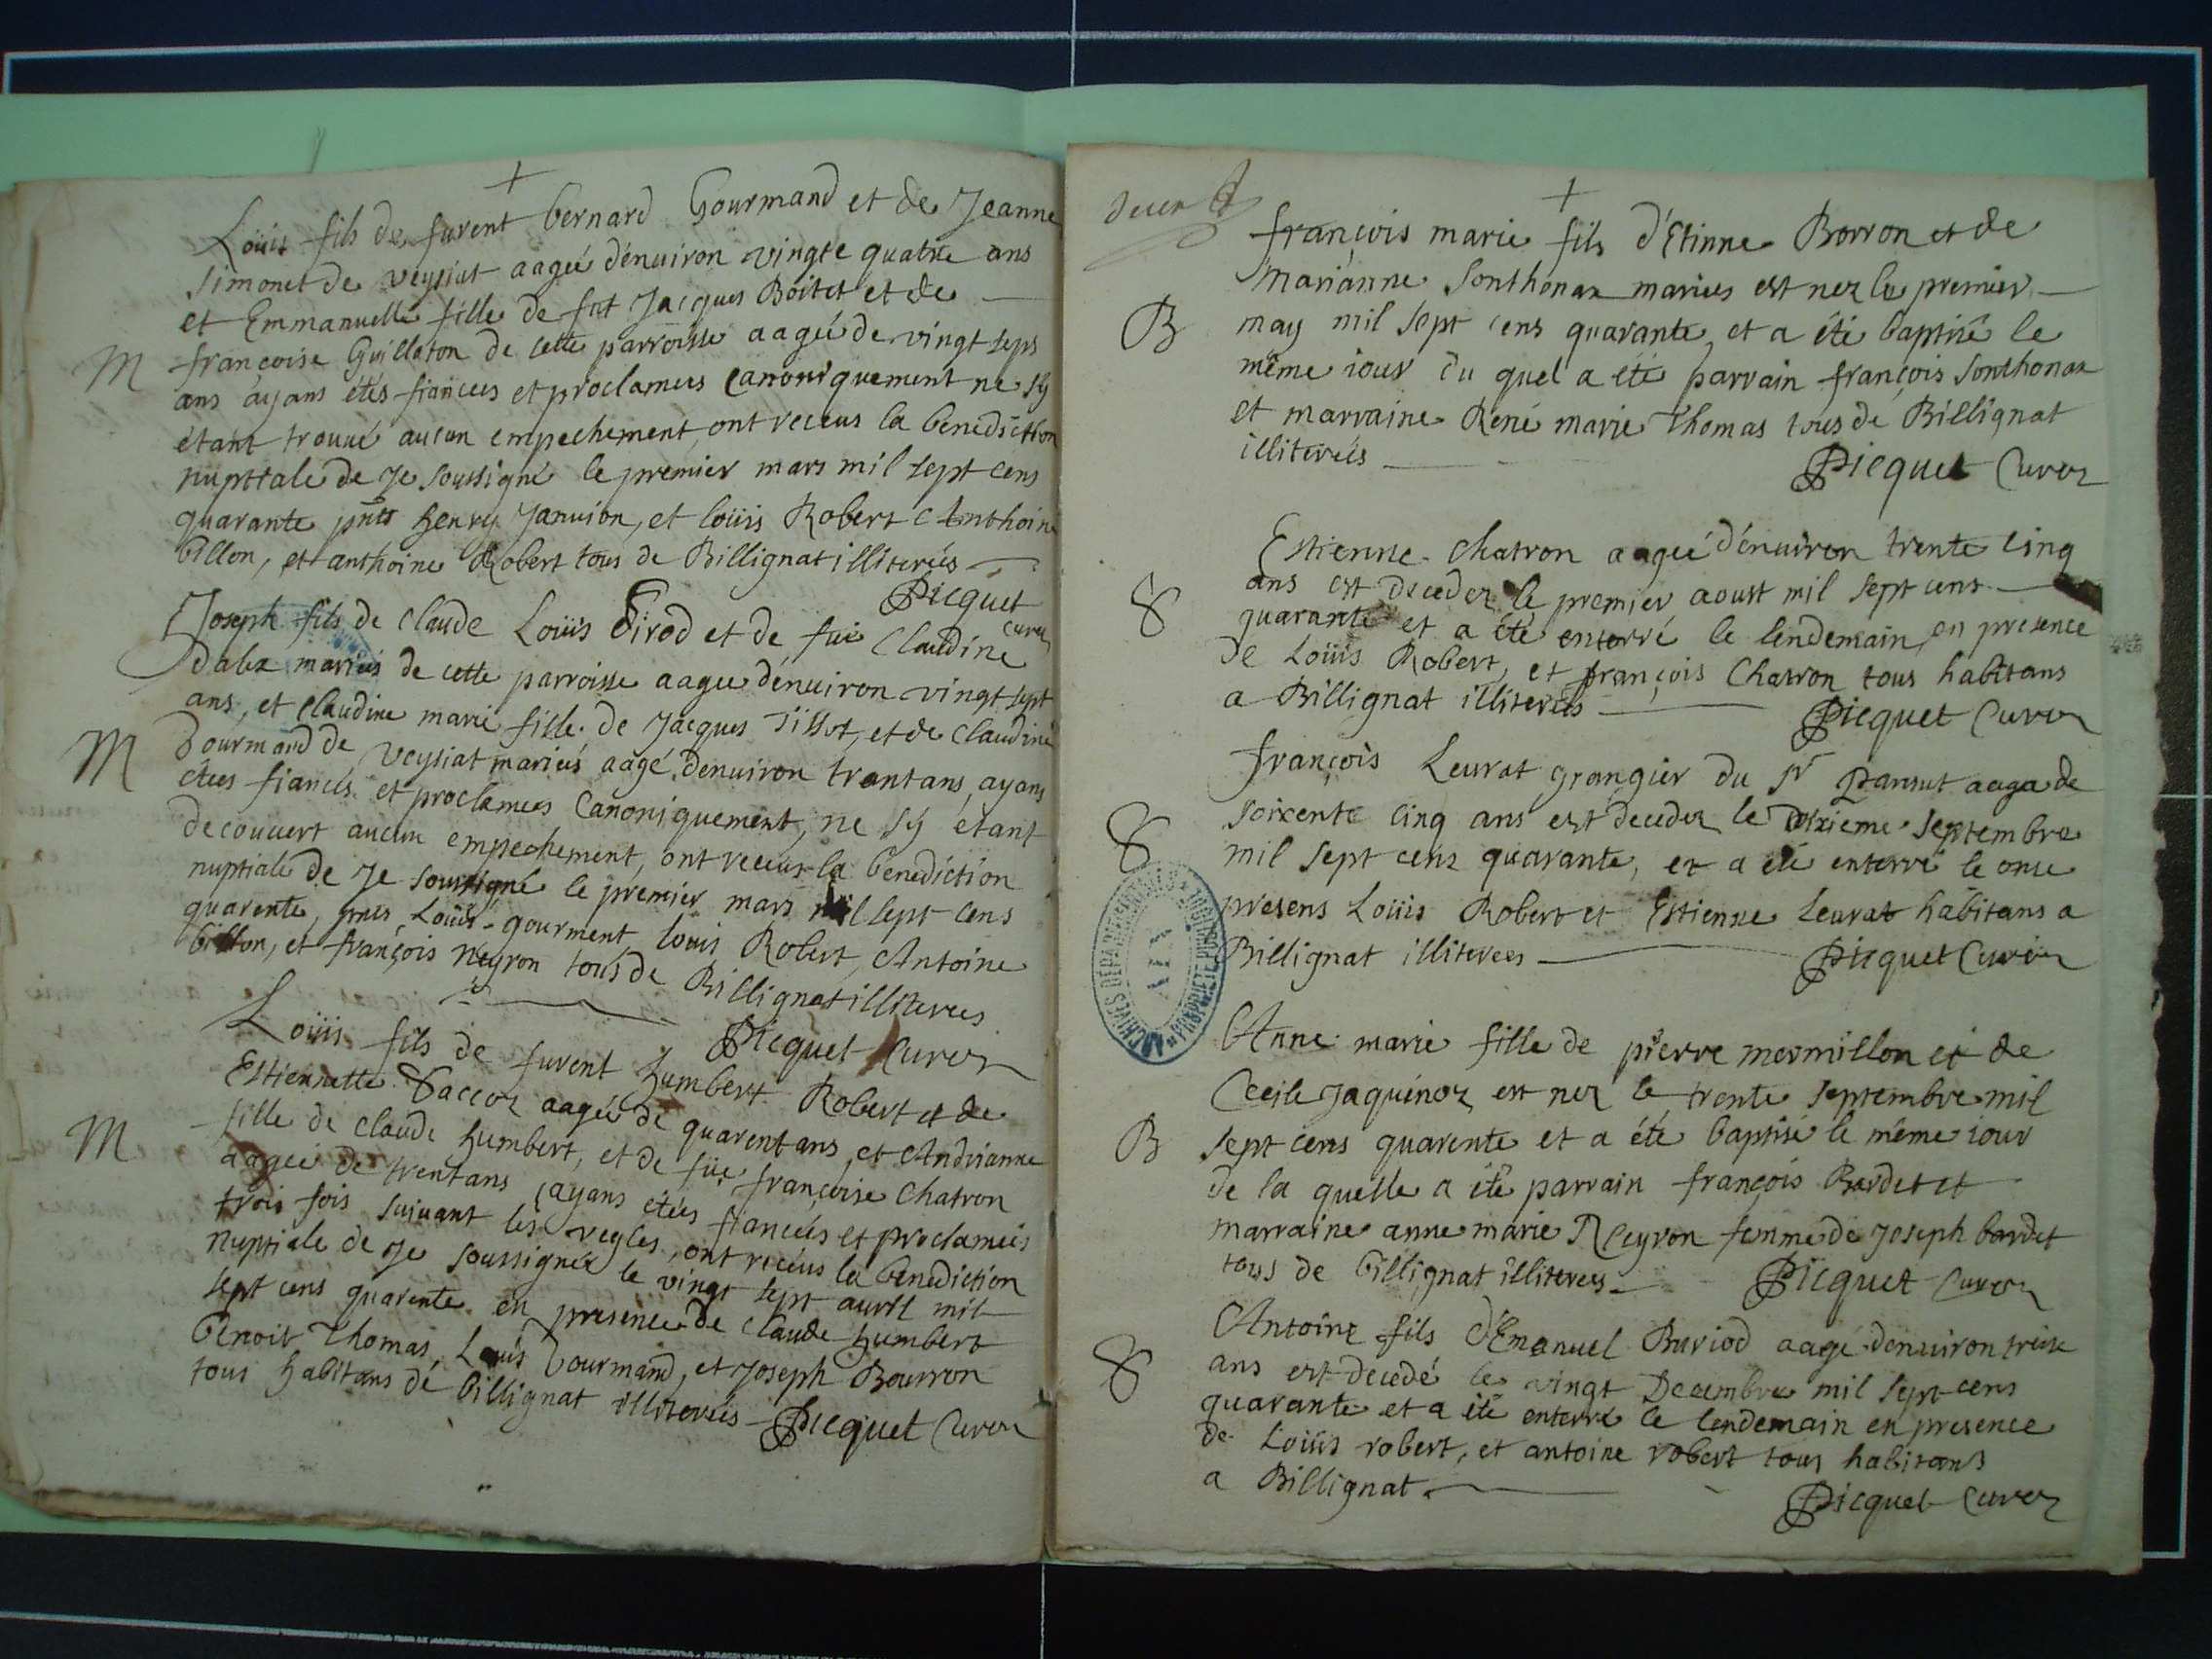 +
Loüis fils de furent bernard Gourmand et de Jeanne
Simonet de veysiat aageé d'enuiron vingte quatre ans
et Emmanuelle fille de fut Jacques Boitet et de
M
francoise Guillaton de cette parroisse aageé de vingt seps
ans ayans étés fiancees et proclamees Canoniquement ne sy
étant trouué aucun empechement, ont receus la benediction
nuptiale de Je soussigné le premier mars mil sept cens
quarante pnts henry Janvion, et loüis Robert Anthoine
billon, et anthoine Robert tous de Billignat illitereés
Picquet
Curez
Joseph fils de Claude Loüis Girod et de fue Claudine
mariés de cette parroisse aageé d'enuiron vingt sept
ans, et Claudine marie fille de Jacques Tissot, et de Claudine
M
Gourmand de veysiat mariés aagé denuiron trentans, ayans
étees fiancés et proclamees Canoniquement, ne sy etant
decouuert aucun empechement, ont receus la benediction
nuptiale de Je soussigné le premier mars mil sept cens
quarente, pnts Loüis gourment, louis Robert, Antoine
billon, et françois Neyron tous de Billignat illiterees
Picquet Curez
Loüis fils de furent humbert Robert et de
Estiennette aageé de quarentans, et Andrianne
M
fille de Claude humbert, et de füe françoise Chatron
aageé de trentans, ayans étees fiancées et proclameés
trois fois suiuant les regles, ont recéus la benediction
nuptiale de Je soussignez le vingt sept auvril mil
sept cens quarente en presence de Claude humbert
benoit Thomas, Louis Gourmand, et Joseph Bourron
tous habitans de billignat illitereés
Picquet Curez
+
françois marie fils d'Etinne Borron et de
Marianne Sonthonax mariees est nez le premier
B
may mil sept cens quarante, et a été baptisé le
même iour du quel a été parrain françois Sonthonax
et marraine René marie Thomas tous de Billignat
illitereés
Picquet Curez
Estienne Chatron aageé d'enuiron trente cinq
ans est decedez le premier aoust mil sept cens
quarante et a été enterré le lendemain, en presence
de Loüis Robert, et françois Chatron tous habitans
a Billignat illitereés
Picquet Curez
françois Leurat grangier du Sr Pansut aaga de
soixente cinq ans est decedez le septembre
mil sept cens quarante, et a été enterré le onse
presens Loüis Robert et Estienne Leurat habitans a
Billignat illiterees
Picquet Curez
ARCHIVES DEPARTEMENTALES
AIN
PROPRIETE PUBLIQUE
Anne marie fille de pierre mermillon et de
Cecile Jaquinoz est nez le trente septembre mil
B
sept cens quarente et a été baptisé le même iour
de la quelle a été parrain françois Bardet et
marraine anne marie Neyron femme de Joseph bardet
tous de billignat illiterees
Picquet Curez
Antoine fils d'Emanuel Buriod aagé denuiron treise
ans est decedé le vingt Decembre mil sept cens
quarante et a été enterré le lendemain en presence
de Loüis robert, et antoine robert tous habitans
a Billignat.
Picquet Curez